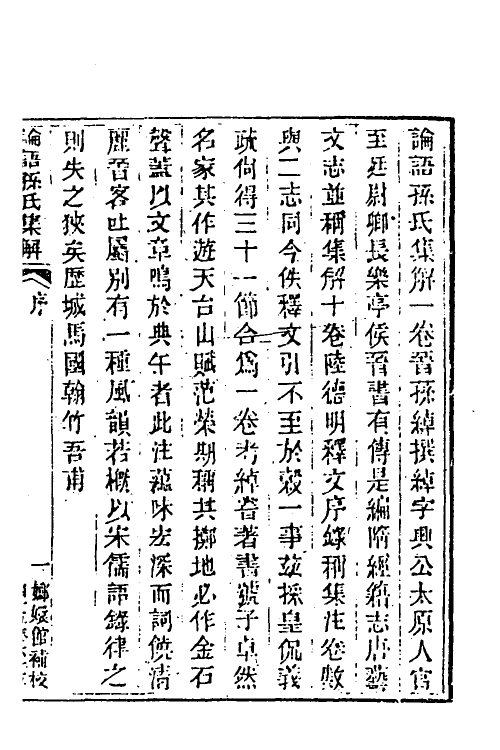 論語孫氏集解一卷晉孫綽撰綽字興公太原人官
至廷尉卿長樂亭侯晉書有傳是編隋經籍志唐藝
文志並稱集解十卷陸德明釋文序錄稱集注卷數
與二志同今佚釋文引不至於穀一事並採皇侃義
疏尚得三十一節合爲一卷考綽嘗著書號子卓然
名家其作遊天台山賦范榮期稱其擲地必作金石
聲蓋以文章鳴於典午者此注蘊味宏深而詞饒清
麗晉客吐屬別有一種風韻若概以宋儒語錄律之
則失之狹矣歷城馬國翰竹吾甫
論語孫氏集解 序 一 嫏嬛館補校